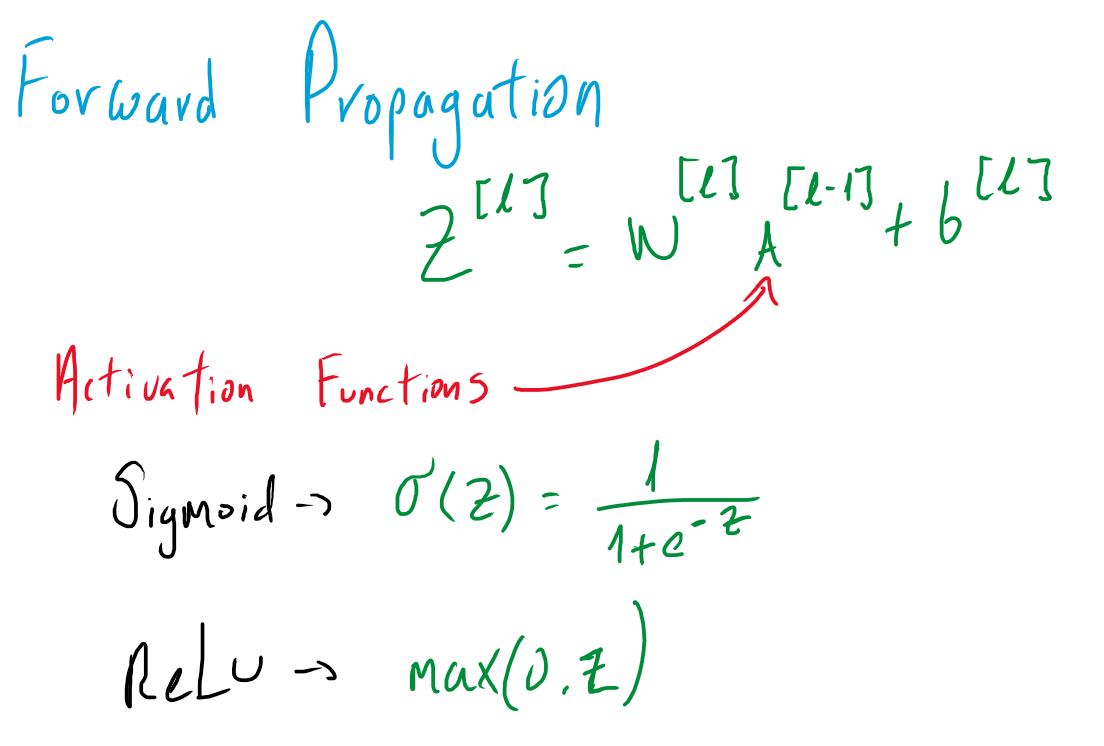 Forward Propagation
Z^[l] = W^[l] A^[l-1] + b^[l]
Activation Functions
Sigmoid → σ(z) = 1 / (1+e^-z)
ReLu → max(0,z)